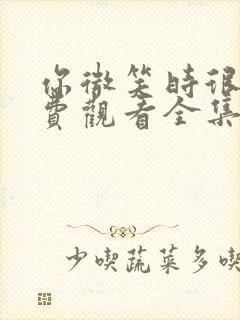 你微笑時很
費觀看全集
少喫蔬菜多喫